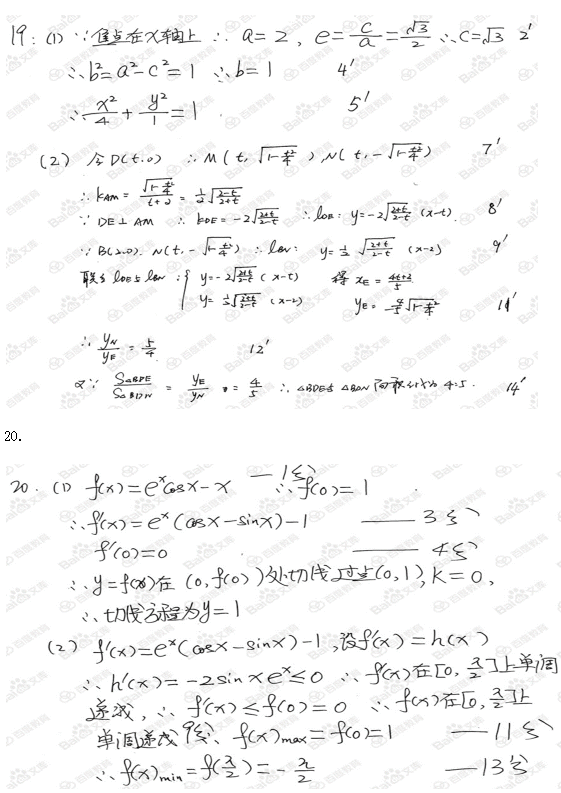 19: (1) ∵ 焦点在x轴上 ∴ a=2, e=c/a=√3/2 ∴c=√3 2'
∴b²=a²-c²=1 ∴b=1 4'
∴x²/4+y²/1=1 5'
(2) 令D(t,0) ∴M(t, √(1-t²/4)), N(t, -√(1-t²/4)) 7'
∴ kAM = √(1-t²/4)/(t+2) = 1/2√((2-t)/(2+t))
∵ DE⊥AM ∴ kDE=-2√((2+t)/(2-t)) ∴lDE: y=-2√((2+t)/(2-t)) (x-t) 8'
∵B(2,0), N(t, -√(1-t²/4)) ∴lBN: y=1/2√((2+t)/(2-t)) (x-2) 9'
联立lDE与lBN: { y=-2√((2+t)/(2-t)) (x-t) 得 xE=(4t+2)/5
y=1/2√((2+t)/(2-t)) (x-2) yE=-4/5√(1-t²/4) 11'
∴ yN/yE = 5/4 12'
又∵ S△BDE/S△BDN = yE/yN = 4/5 ∴△BDE与△BDN面积之比为4:5. 14'
20.
20. (1) f(x)=eˣcosx-x —1分 ∴f(0)=1
∴f'(x)=eˣ(cosx-sinx)-1 ——3分
f'(0)=0 ——4分
∴y=f(x)在(0,f(0))处切线过点(0,1), K=0,
∴切线方程为y=1
(2) f'(x)=eˣ(cosx-sinx)-1, 设f'(x)=h(x)
∴h'(x)=-2sinxeˣ≤0 ∴f'(x)在[0,π/2]上单调
递减, ∴f'(x)≤f'(0)=0 ∴f(x)在[0,π/2]上
单调递减 9分 ∴f(x)max=f(0)=1 —11分
∴f(x)min=f(π/2)=-π/2 —13分